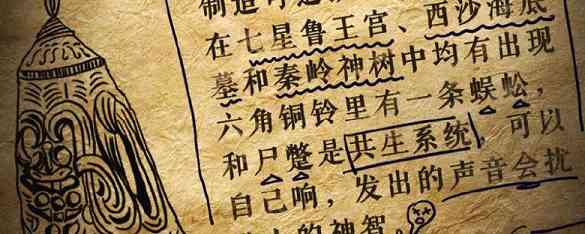 制造
在七星鲁王宫、西沙海底
墓和秦岭神树中均有出现
六角铜铃里有一条蜈蚣，
和尸蹩是共生系统，可以
自己响，发出的声音会扰
的神智。